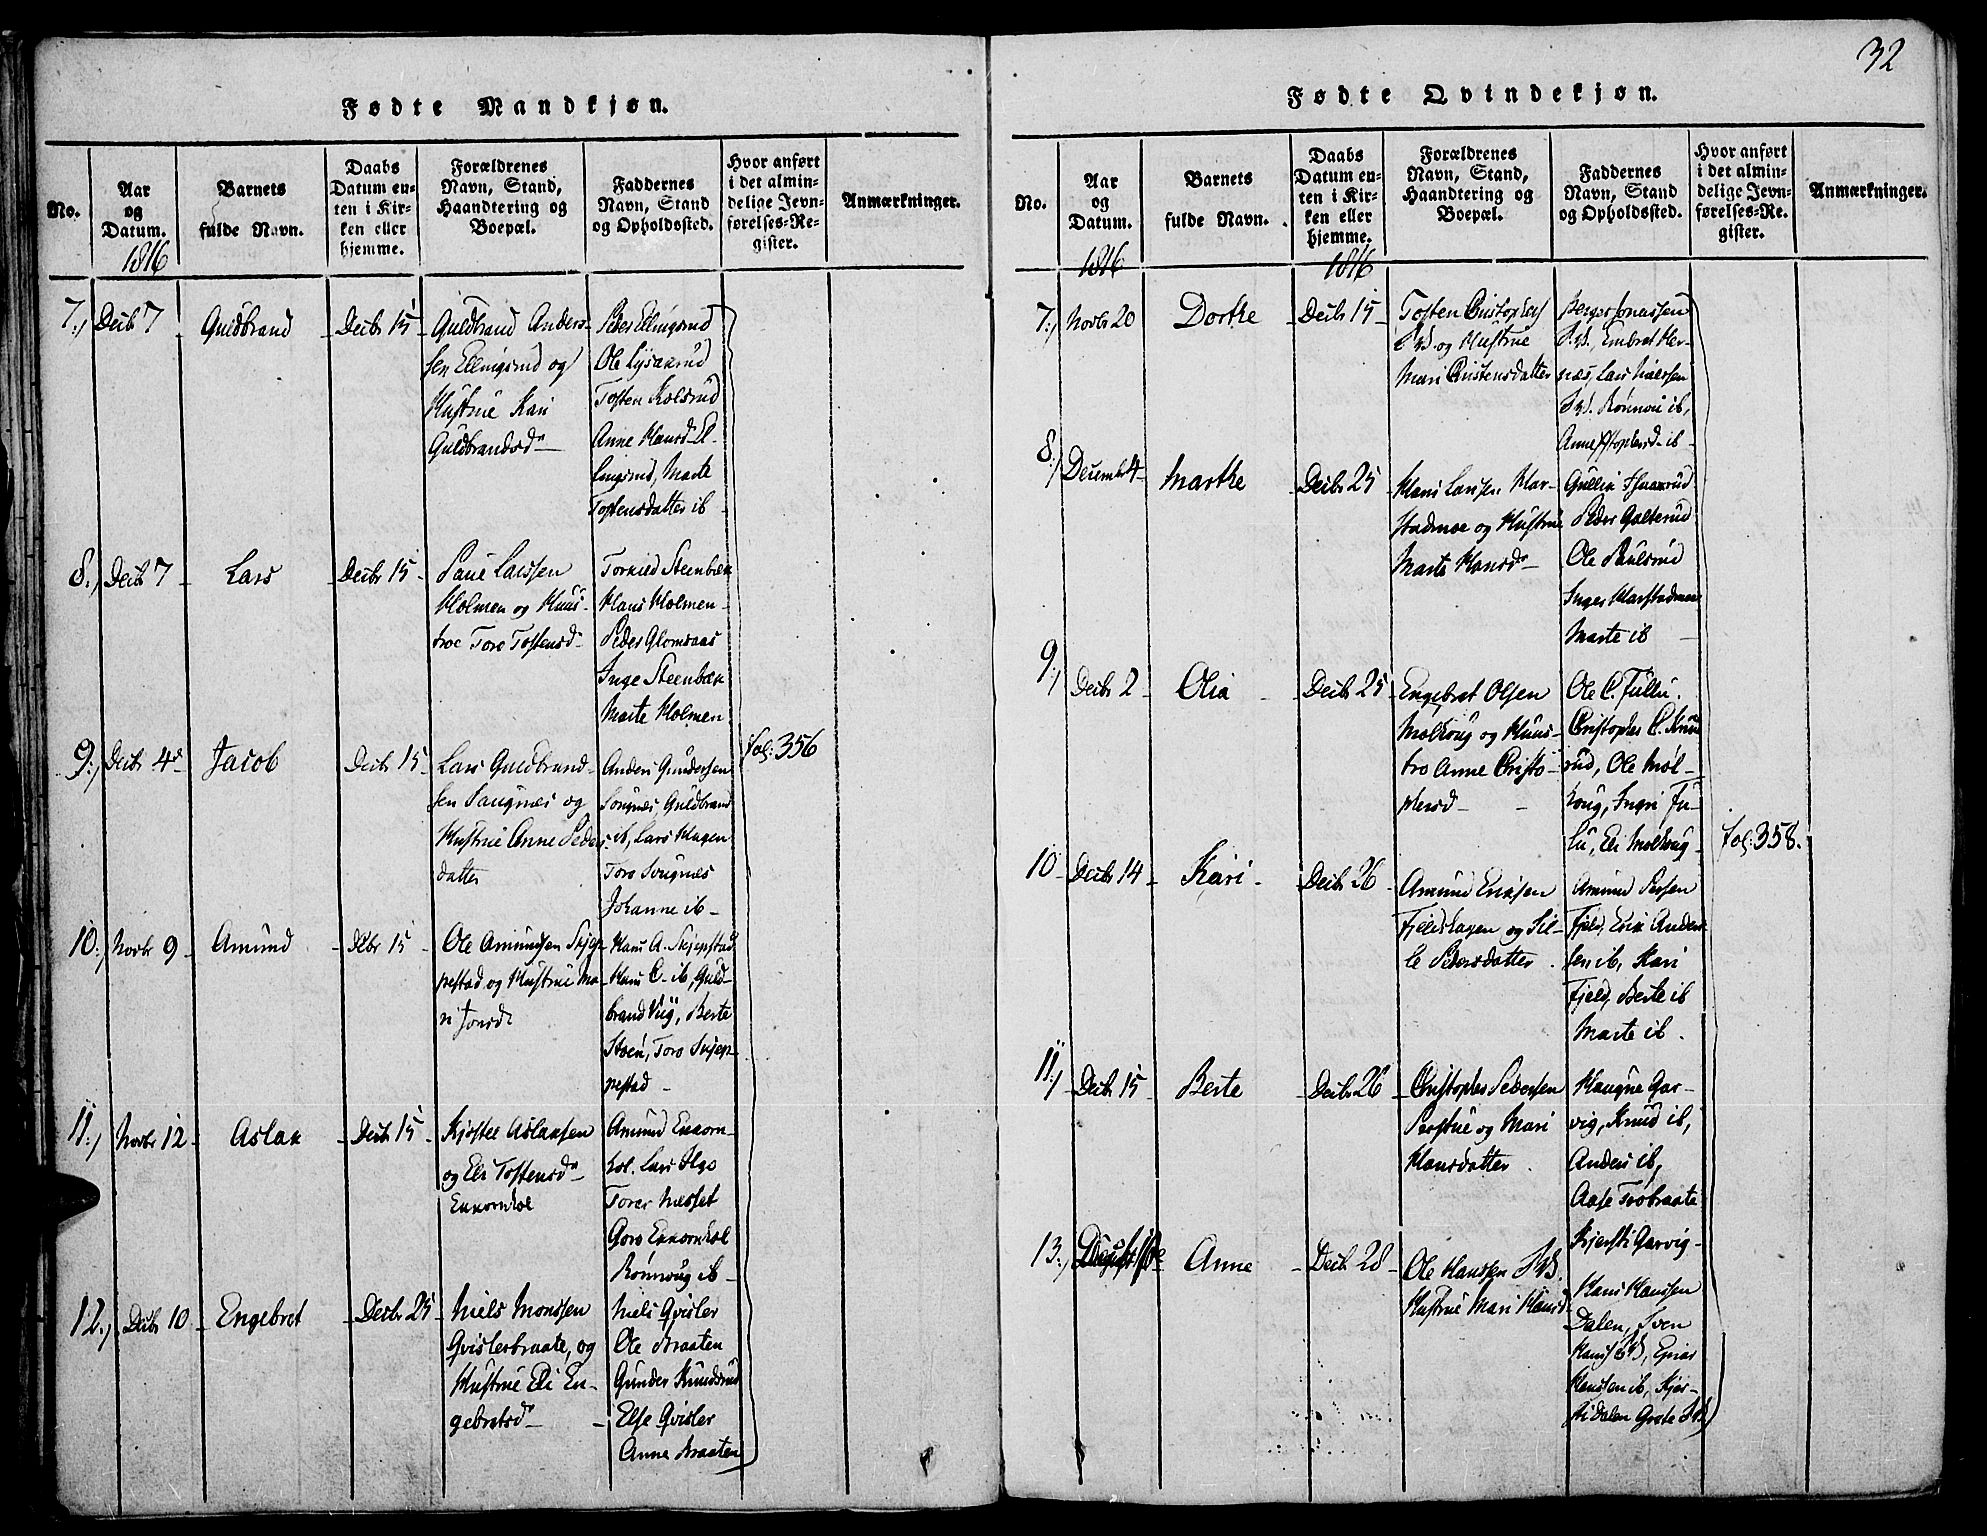 32
Fødte Mandkjøn.
No.
Aar
og
Datum.
1816
Barnets
fulde Navn.
Daabs
Datum en-
ten i Kir-
ken eller
hjemme.
Forældrenes
Navn, Stand,
Haandtering og
Boepæl.
Faddernes
Navn, Stand
og Opholdssted.
Hvor anført
i det almin-
delige Jevn-
førelses-Re-
gister.
Anmærkninger.
7.) Decbr 7
Guldbrand
Decbr 15
Guldbrand Anders-
sen Ellingsrud og
Hustrue Kari
Guldbrandsd.
Peder Ellingsrud
Ole Lysakrud
Tosten Kolsrud
Anne Hansd. El-
lingsrud, Marte
Tostensdatter ib.
8.) Decbr 7
Lars
Decbr 15
Paul Larssen
Holmen og Huus-
troe Toro Tostensd.
Torkild Steenbæk
Hans Holmen
Peder Glomsaas
Inge Steenbæk
Marte Holmen
9.) Decbr 4de
Jacob
Decbr 15
Lars Guldbrand-
sen Sougnes og
Hustrue Anne Peders-
datter
Anders Gundersen
Sougnes Guldbrand
ib, Lars Hagen
Toro Sougnes
Johanne ib
fol: 356
10.) Novbr 9
Amund
Decbr 15
Ole Amundsen Skjep-
pestad og Hustrue Ma-
ri Jonsd.
Hans A. Skjepstad
Hans C. ib, Guld-
brand Viig, Berte
Stoen, Toro Skjep-
pestad
11.) Novbr 12
Aslak
Decbr 15
Kjøstel Aslaksen
og Eli Tostensd.
Ekkornhol
Amund Ekkorn-
hol. Lars Ilgo
Torer Næsset
Goro Ekkornhol
Rønnoug ib
12.) Decbr 10
Engebret
Decbr 25
Niels Monssen
Qvislerbraate, og
Hustrue Eli En-
gebretsd.
Niels Qvisler
Ole Braaten
Gunder Knudsrud
Else Qvisler
Anne Braaten
Fødte Qvindekjøn.
No.
Aar
og
Datum.
1816
Barnets
fulde Navn.
Daabs
Datum en-
ten i Kir-
ken eller
hjemme.
1816
Forældrenes
Navn, Stand,
Haandtering og
Boepæl.
Faddernes
Navn, Stand
og Opholdssted.
Hvor anført
i det almin-
delige Jevn-
førelses-Re.
gister.
Anmærkninger.
7.) Novbr 20
Dorthe
Decbr 15
Tosten Christophers
og Hustrue
Mari Christensdatter
Berger Jonassen
Embret Her-
næs, Lars Nielssen
Rønnou ib,
Anne ib
8.) December 4
Marthe
Decbr 25
Hans Larsen Har-
stadmoe og Hustrue
Marte Hansd.
Gullik
Peder Galterud
Ole Paulsrud
Inger Harstadmoe
Marte ib
9.) Decbr 2
Olia
Decbr 25
Engebret Olsen
Molkoug og Huus-
tro Anne Christo-
phersd.
Ole C. Fullu.
Christopher C. Knud-
rud, Ole Mol-
koug, Ingri Fu-
lu, Eli Molkoug
10 Decbr 14
Kari
Decbr 26
Amund Eriksen
Fjeldshagen og Sil-
le Pedersdatter
Amund Persen
Fjeld, Erik Anders-
sen ib, Kari
Fjeld, Berte ib
Marte ib.
fol: 358.
11.) Decbr 15
Berte
Decbr 26
Christopher Pedersen
Perstue og Mari
Hansdatter
Haugne Gar-
vig, Knud ib,
Anders ib,
Aase Trobraate
Kjersti Garvig
13.)
Anne
Decbr 28
Ole Hanssen
Hustrue Mari Hansd.
Hans Hanssen
Dalen, Sven
Einar
Hanssen ib, Kjer-
sti Dalen Grete